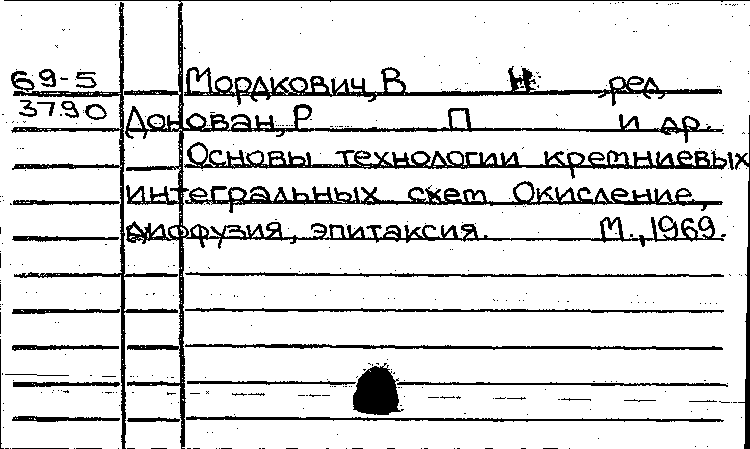 69-5 Мордкович, В Н ,ред.
3790 Донован, Р П и др.
Основы технологии кремниевых
интегральных схем. Окисление,
диффузия, эпитаксия. М., 1969.